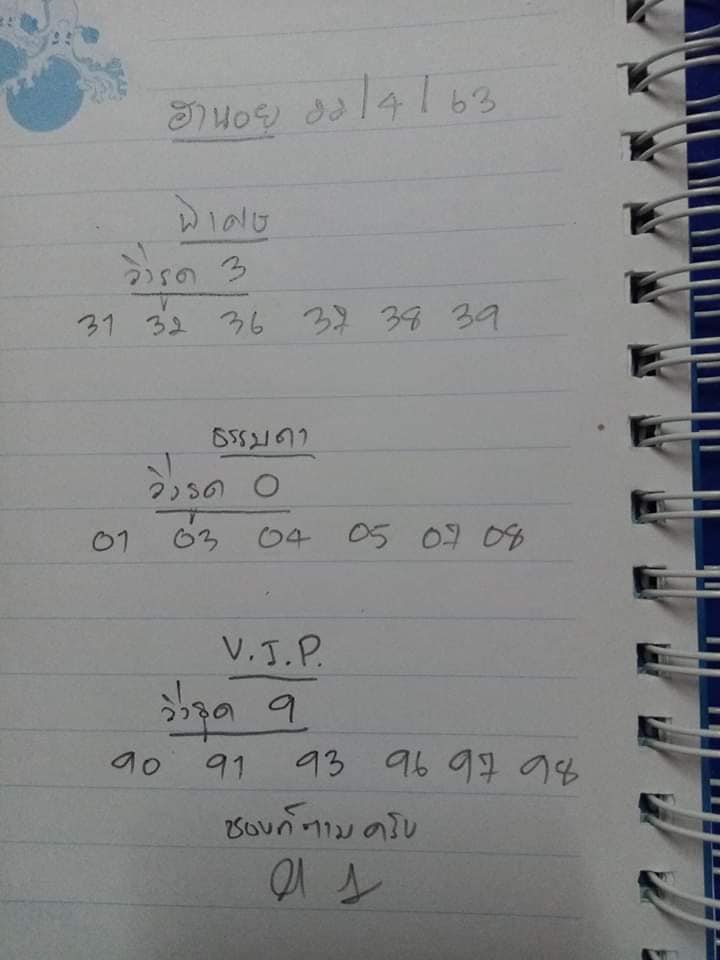 ฮานอย 22/4/63
พิเศษ
วิ่งรูด 3
31 32 36 37 38 39
ธรรมดา
วิ่งรูด 0
01 03 04 05 07 08
V.I.P.
วิ่งรูด 9
90 91 93 96 97 98
ชอบก็ตามครับ